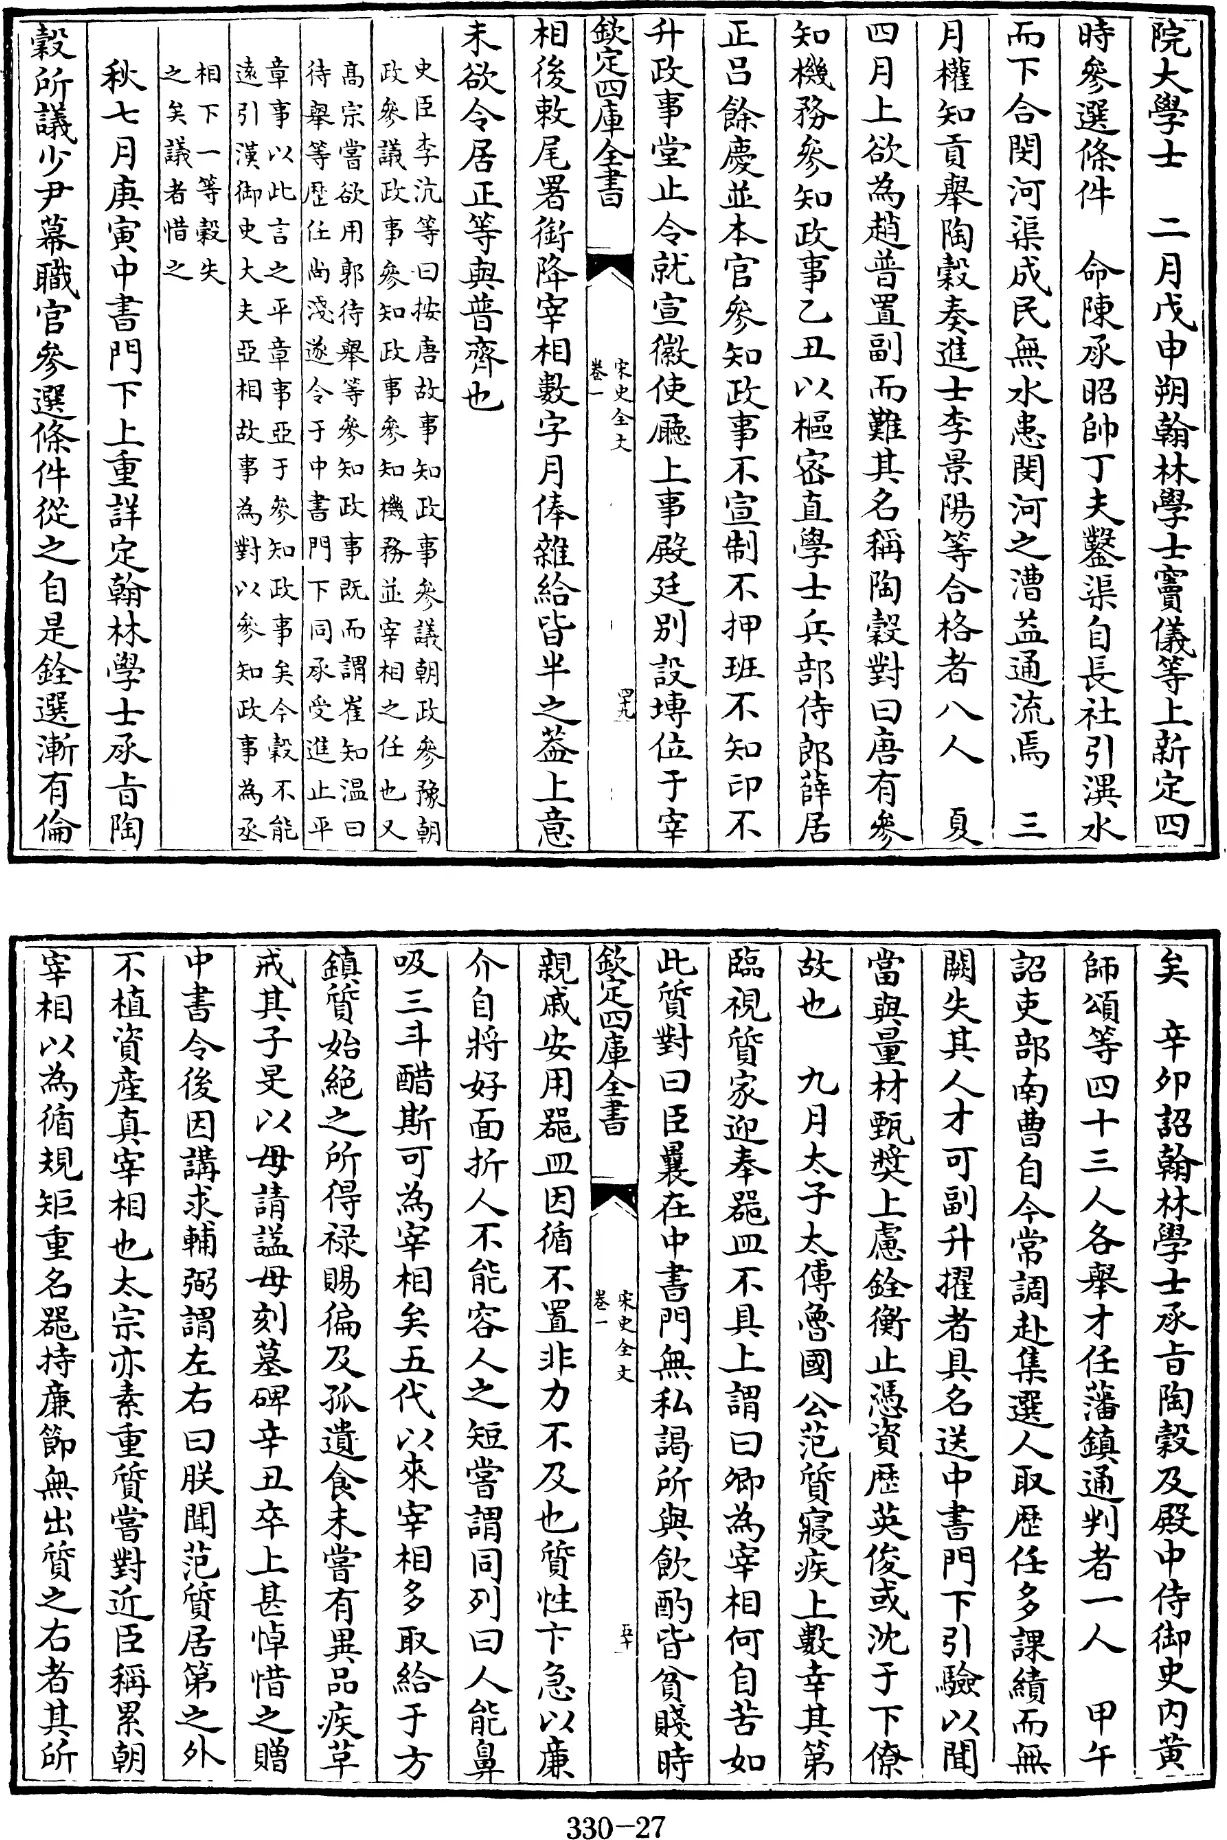 院大學士　二月戊申朔翰林學士竇儀等上新定四
時參選條件　命陳承昭帥丁夫鑿渠自長社引潩水
而下合閔河渠成民無水患閔河之漕益通流焉　三
月權知貢舉陶穀奏進士李景陽等合格者八人　夏
四月上欲為趙普置副而難其名稱陶穀對曰唐有參
知機務參知政事乙丑以樞密直學士兵部侍郎薛居
正呂餘慶並本官參知政事不宣制不押班不知印不
升政事堂止令就宣徽使廳上事殿廷别設塼位于宰
欽定四庫全書
宋史全文
卷一
四十九
相後敕尾署銜降宰相數字月俸雜給皆半之葢上意
未欲令居正等與普齊也
史臣李沆等曰按唐故事知政事參議朝政參豫朝
政參議政事參知政事參知機務並宰相之任也又
髙宗嘗欲用郭待舉等參知政事既而謂崔知温曰
待舉等歴任尚淺遂令于中書門下同承受進止平
章事以此言之平章事亞于參知政事矣今穀不能
逺引漢御史大夫亞相故事為對以參知政事為丞
相下一等穀失
之矣議者惜之
秋七月庚寅中書門下上重詳定翰林學士承旨陶
穀所議少尹幕職官參選條件從之自是銓選漸有倫
矣　辛卯詔翰林學士承旨陶穀及殿中侍御史内黄
師頌等四十三人各舉才任藩鎮通判者一人　甲午
詔吏部南曹自今常調赴集選人取歴任多課績而無
闕失其人才可副升擢者具名送中書門下引驗以聞
當與量材甄奬上慮銓衡止憑資歴英俊或沈于下僚
故也　九月太子太傅魯國公范質寢疾上數幸其第
臨視質家迎奉器皿不具上謂曰卿為宰相何自苦如
此質對曰臣曩在中書門無私謁所與飲酌皆貧賤時
欽定四庫全書
宋史全文
卷一
五十
親戚安用器皿因循不置非力不及也質性卞急以廉
介自將好面折人不能容人之短嘗謂同列曰人能鼻
吸三斗醋斯可為宰相矣五代以來宰相多取給于方
鎮質始絶之所得禄賜徧及孤遺食未嘗有異品疾草
戒其子旻以毋請謚毋刻墓碑辛丑卒上甚悼惜之贈
中書令後因講求輔弼謂左右曰朕聞范質居第之外
不植資産真宰相也太宗亦素重質嘗對近臣稱累朝
宰相以為循規矩重名器持廉節無出質之右者其所
330-27